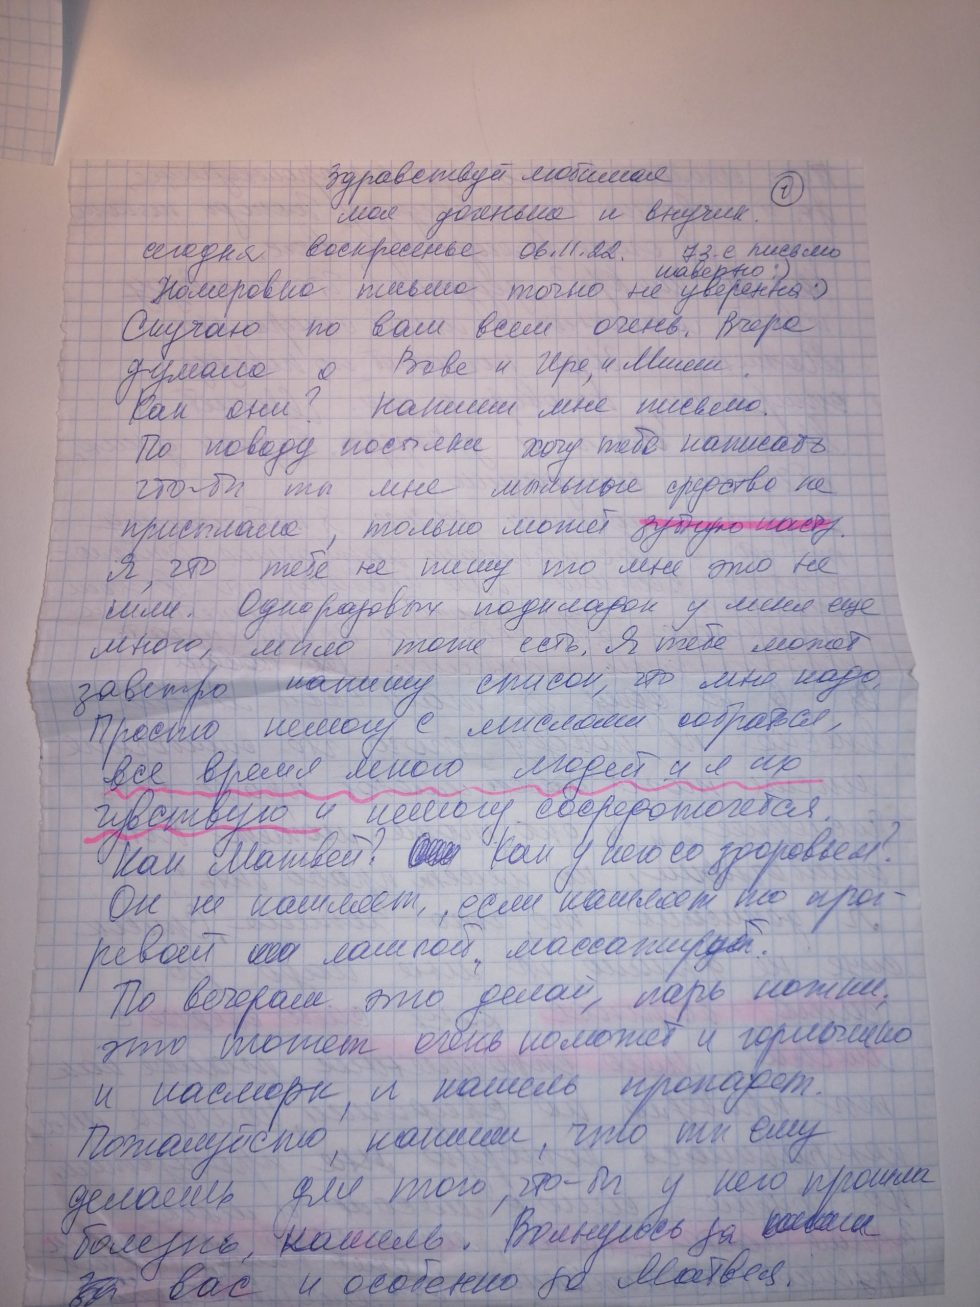 Здравствуй любимая
моя доченька и внучик.
①
сегодня воскресенье 06.11.22. 73-е письмо
наверно:)
Номеровка письма точно не уверенна:)
Скучаю по вам всем очень. Вчера
думала о Вове и Ире, и Миши.
Как они? Напиши мне письмо.
По поводу посылки хочу тебе написать
что-бы ты мне мыльные средства не
присылала, только может зубную пасту.
Я, что тебе не пишу то мне это не
шли. Одноразовых подкладок у меня еще
много, мыло тоже есть. Я тебе может
завтро напишу список, что мне надо.
Просто немогу с мыслями собраться,
все время много людей и я их
чувствую и немогу сосредоточется.
Как Матвей? Как у него со здоровьем?
Он не кашляет, если кашляет то прог-
ревай лампой, массажируй.
По вечерам это делай, парь ножки,
это может очень поможет и горлышко
и насморк, и кашель пропадет.
Пожалуйсто, напиши, что ты ему
делаешь для того, что-бы у него прошла
болезнь, кашель. Волнуюсь за
вас и особенно за Матвея.